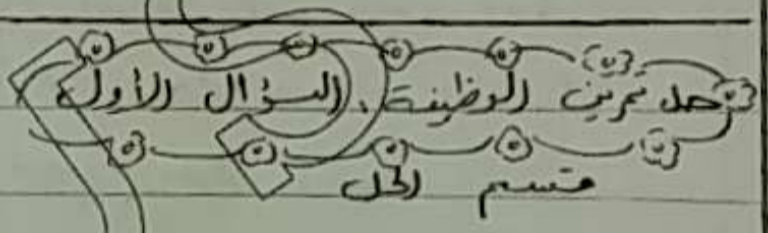 حل تمرين الوظيفة . السؤال الأول
قسم الحل